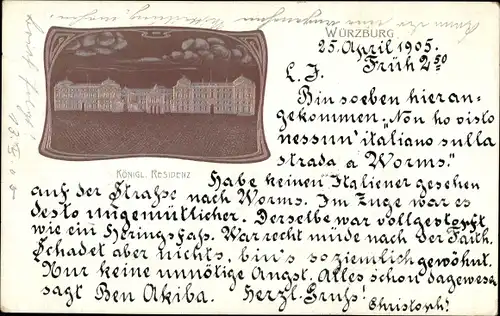 WÜRZBURG
25. April 1905.
Früh 2 50
L. J.
Bin soeben hier an-
gekommen. „Non ho visto
nessun' italiano sulla
strada a Worms."
KÖNIGL. RESIDENZ
Habe keinen Italiener gesehen
auf der Straße nach Worms. Im Zuge war es
desto ungemütlicher. Derselbe war vollgestopft
wie ein Heringsfass. War recht müde nach der Fahrt.
Schadet aber nichts, bin's so ziemlich gewöhnt.
Nur keine unnötige Angst. Alles schon dagewesen
sagt Ben Akiba. Herzl. Gruß
Christoph!